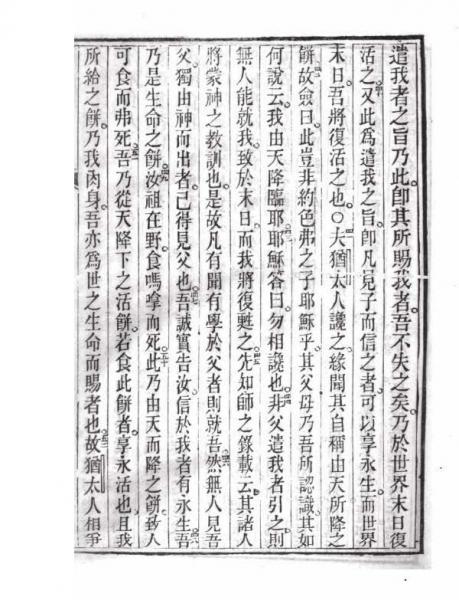 遣我者之旨乃此。卽其所賜我者。吾不失之矣。乃於世界末日復
活之。又此爲遣我之旨。卽凡見子而信之者。可以享永生。而世界
末日。吾將復活之也。○夫猶太人讒之。緣聞其自稱由天所降之
餅。故僉曰。此豈非約色弗之子耶穌乎。其父母乃吾所認識。其如
何說云。我由天降臨耶。耶穌答曰。勿相讒也。非父遣我者引之。則
無人能就我。致於末日。而我將復甦之。先知師之錄載云。其諸人
將蒙神之教訓也。是故凡有聞有學於父者則就吾。然無人見吾
父。獨由神而出者。己得見父也。吾誠實告汝。信於我者有永生。吾
乃是生命之餅。汝祖在野。食嗎嗱而死。此乃由天而降之餅。致人
可食而弗死。吾乃從天降下之活餅。若食此餅者。享永活也。且我
所給之餅。乃我肉身。吾亦爲世之生命而賜者也。故猶太人相爭